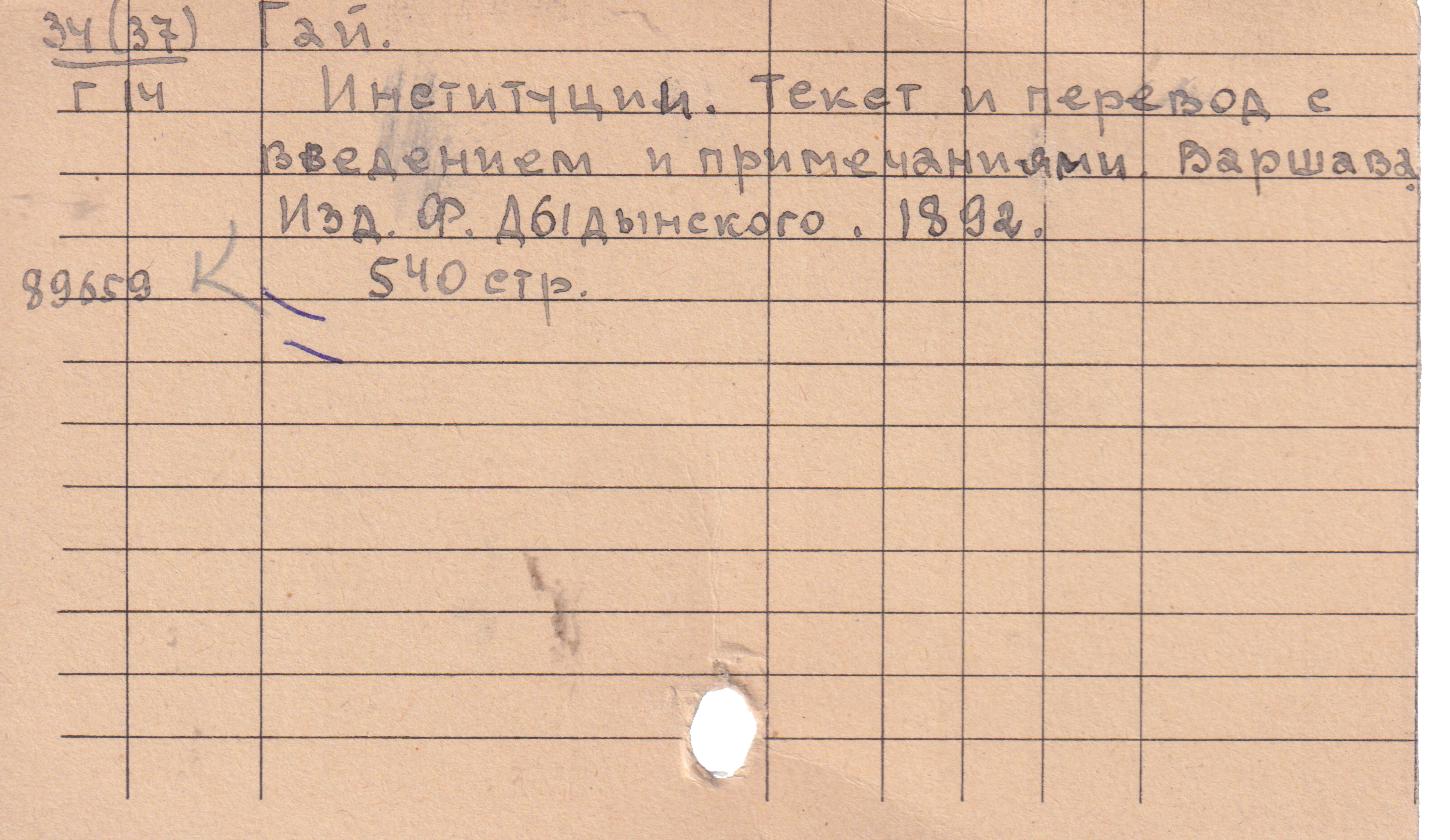 34(37) Гай.
Г 14 Институции. Текст и перевод с
введением и примечаниями. Варшава,
Изд. Ф. Дыдынского. 1892.
89659 К 540 стр.